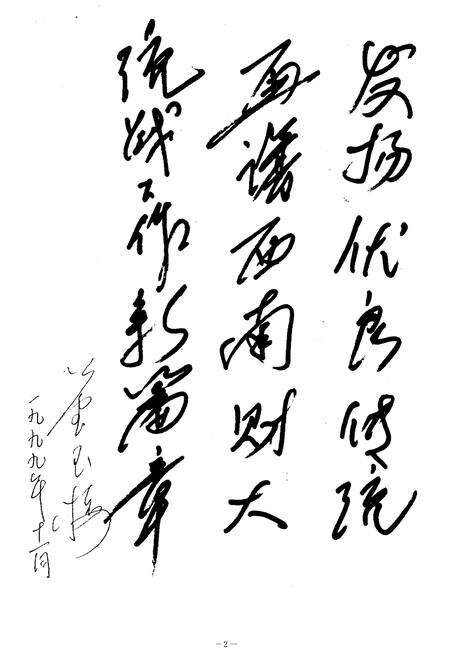 发扬优良传统
再谱西南财大
统战工作新篇章
一九九九年十一月
-2-